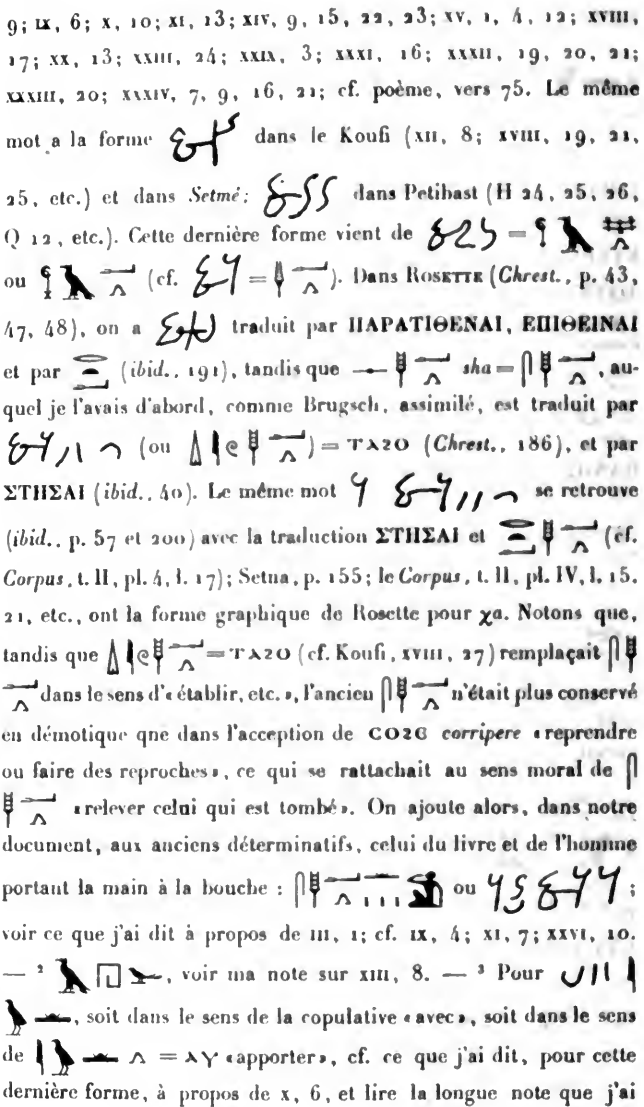 9; IX, 6; X, 10; XI, 13; XIV, 9, 15, 22, 23; XV, 1, 4, 12; XVIII,
17; XX, 13; XXIII, 24; XXIX, 3; XXXI, 16; XXXII, 19, 20, 21;
XXXIII, 20; XXXIV, 7, 9, 16, 21; cf. poème, vers 75. Le même
mot a la forme dans le Koufi (XII, 8; XVIII, 19, 21,
25, etc.) et dans Setmé; dans Petibast (H 24, 25, 26,
Q 12, etc.). Cette dernière forme vient de =
ou (cf. = ). Dans ROSETTE (Chrest., p. 43,
47, 48), on a traduit par ΠΑΡΑΤΙΘΕΝΑΙ, ΕΠΙΘΕΙΝΑΙ
et par (ibid., 191), tandis que sha = , au-
quel je l'avais d'abord, comme Brugsch, assimilé, est traduit par
(ou ) = ⲦⲀϨⲞ (Chrest., 186), et par
ΣΤΗΣΑΙ (ibid., 40). Le même mot se retrouve
(ibid., p. 57 et 200) avec la traduction ΣΤΗΣΑΙ et (cf.
Corpus, t. II, pl. 4, l. 17); Setna, p. 155; le Corpus, t. II, pl. IV, l. 15,
21, etc., ont la forme graphique de Rosette pour χα. Notons que,
tandis que = ⲦⲀϨⲞ (cf. Koufi, XVIII, 27) remplaçait
dans le sens d'« établir, etc. », l'ancien n'était plus conservé
en démotique que dans l'acception de ⲤⲞϨⲈ corripere « reprendre
ou faire des reproches », ce qui se rattachait au sens moral de
« relever celui qui est tombé ». On ajoute alors, dans notre
document, aux anciens déterminatifs, celui du livre et de l'homme
portant la main à la bouche : ou ;
voir ce que j'ai dit à propos de III, 1; cf. IX, 4; XI, 7; XXVI, 10.
— ² , voir ma note sur XIII, 8. — ³ Pour
, soit dans le sens de la copulative « avec », soit dans le sens
de = ⲀⲨ « apporter », cf. ce que j'ai dit, pour cette
dernière forme, à propos de X, 6, et lire la longue note que j'ai